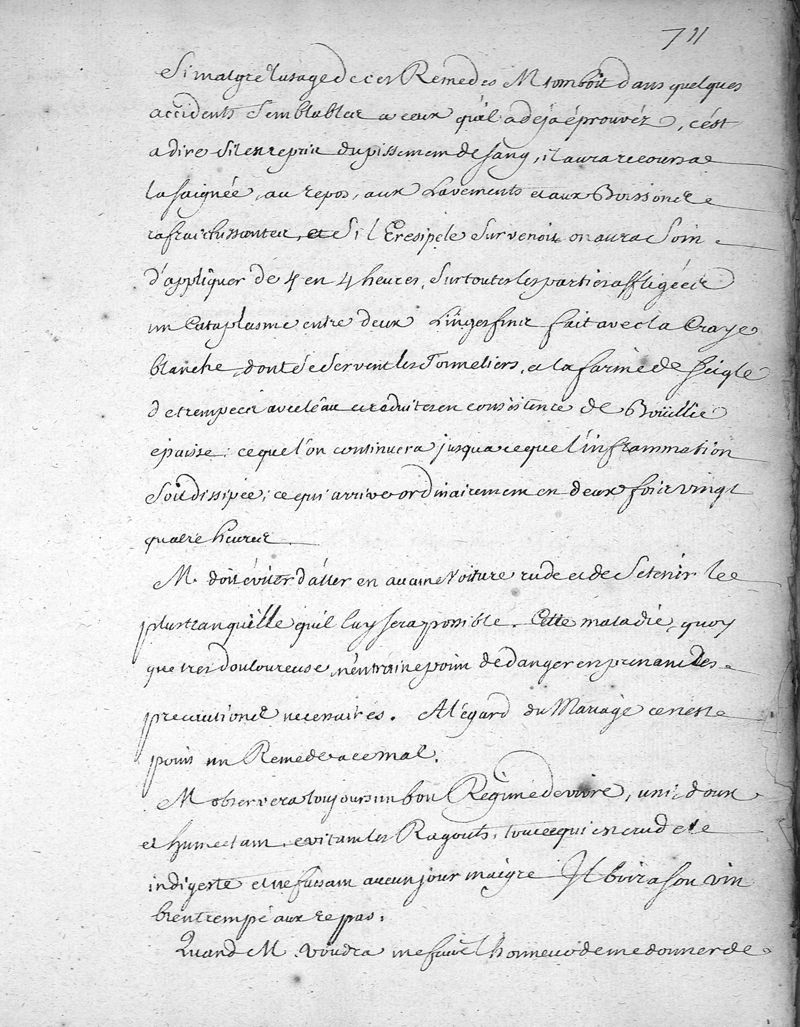 711
Si malgré lusage de ces Remedes M tomboit dans quelques
accidents Semblables a ceux qu'il a deja éprouvéz, c'est
a dire Sil en reprit du pissement de sang, il aura recours a
la saignée, au repos, aux Lavements et aux Boissons
rafraichissantes, et Si l'Eresipele Survenoit on aura Soin
d'appliquer de 4 en 4 heures, Sur toutes les parties affligées
un Cataplasme entre deux Linges fins fait avec la Craye
blanche dont Se Servent les Tonneliers, et la farine de seigle
detrempees avec leau et reduites en consistence de Boüillie
epaisse; ce que l'on continuera jusqua ce que l'inflammation
Soit dissipée; ce qui arrive ordinairement en deux fois vingt
quatre heures
M. doit éviter d'aller en aucune Voiture rude et de Se tenir le
plus tranquille quil luy sera possible. Cette maladie, quoy
que tres douloureuse n'entraine point de danger en prenant les
precautions necessaires. A l'égard du Mariage ce n'est
point un Remede a ce mal.
M observera toujours un bon Régime de vivre, uni, doux
et humectant, evitant les Ragouts, tout ce qui est crud et
indigeste et ne faisant aucun jour maigre Il boira son vin
bien trempé aux repas.
Quand M. voudra me faire l'honneur de me donner de